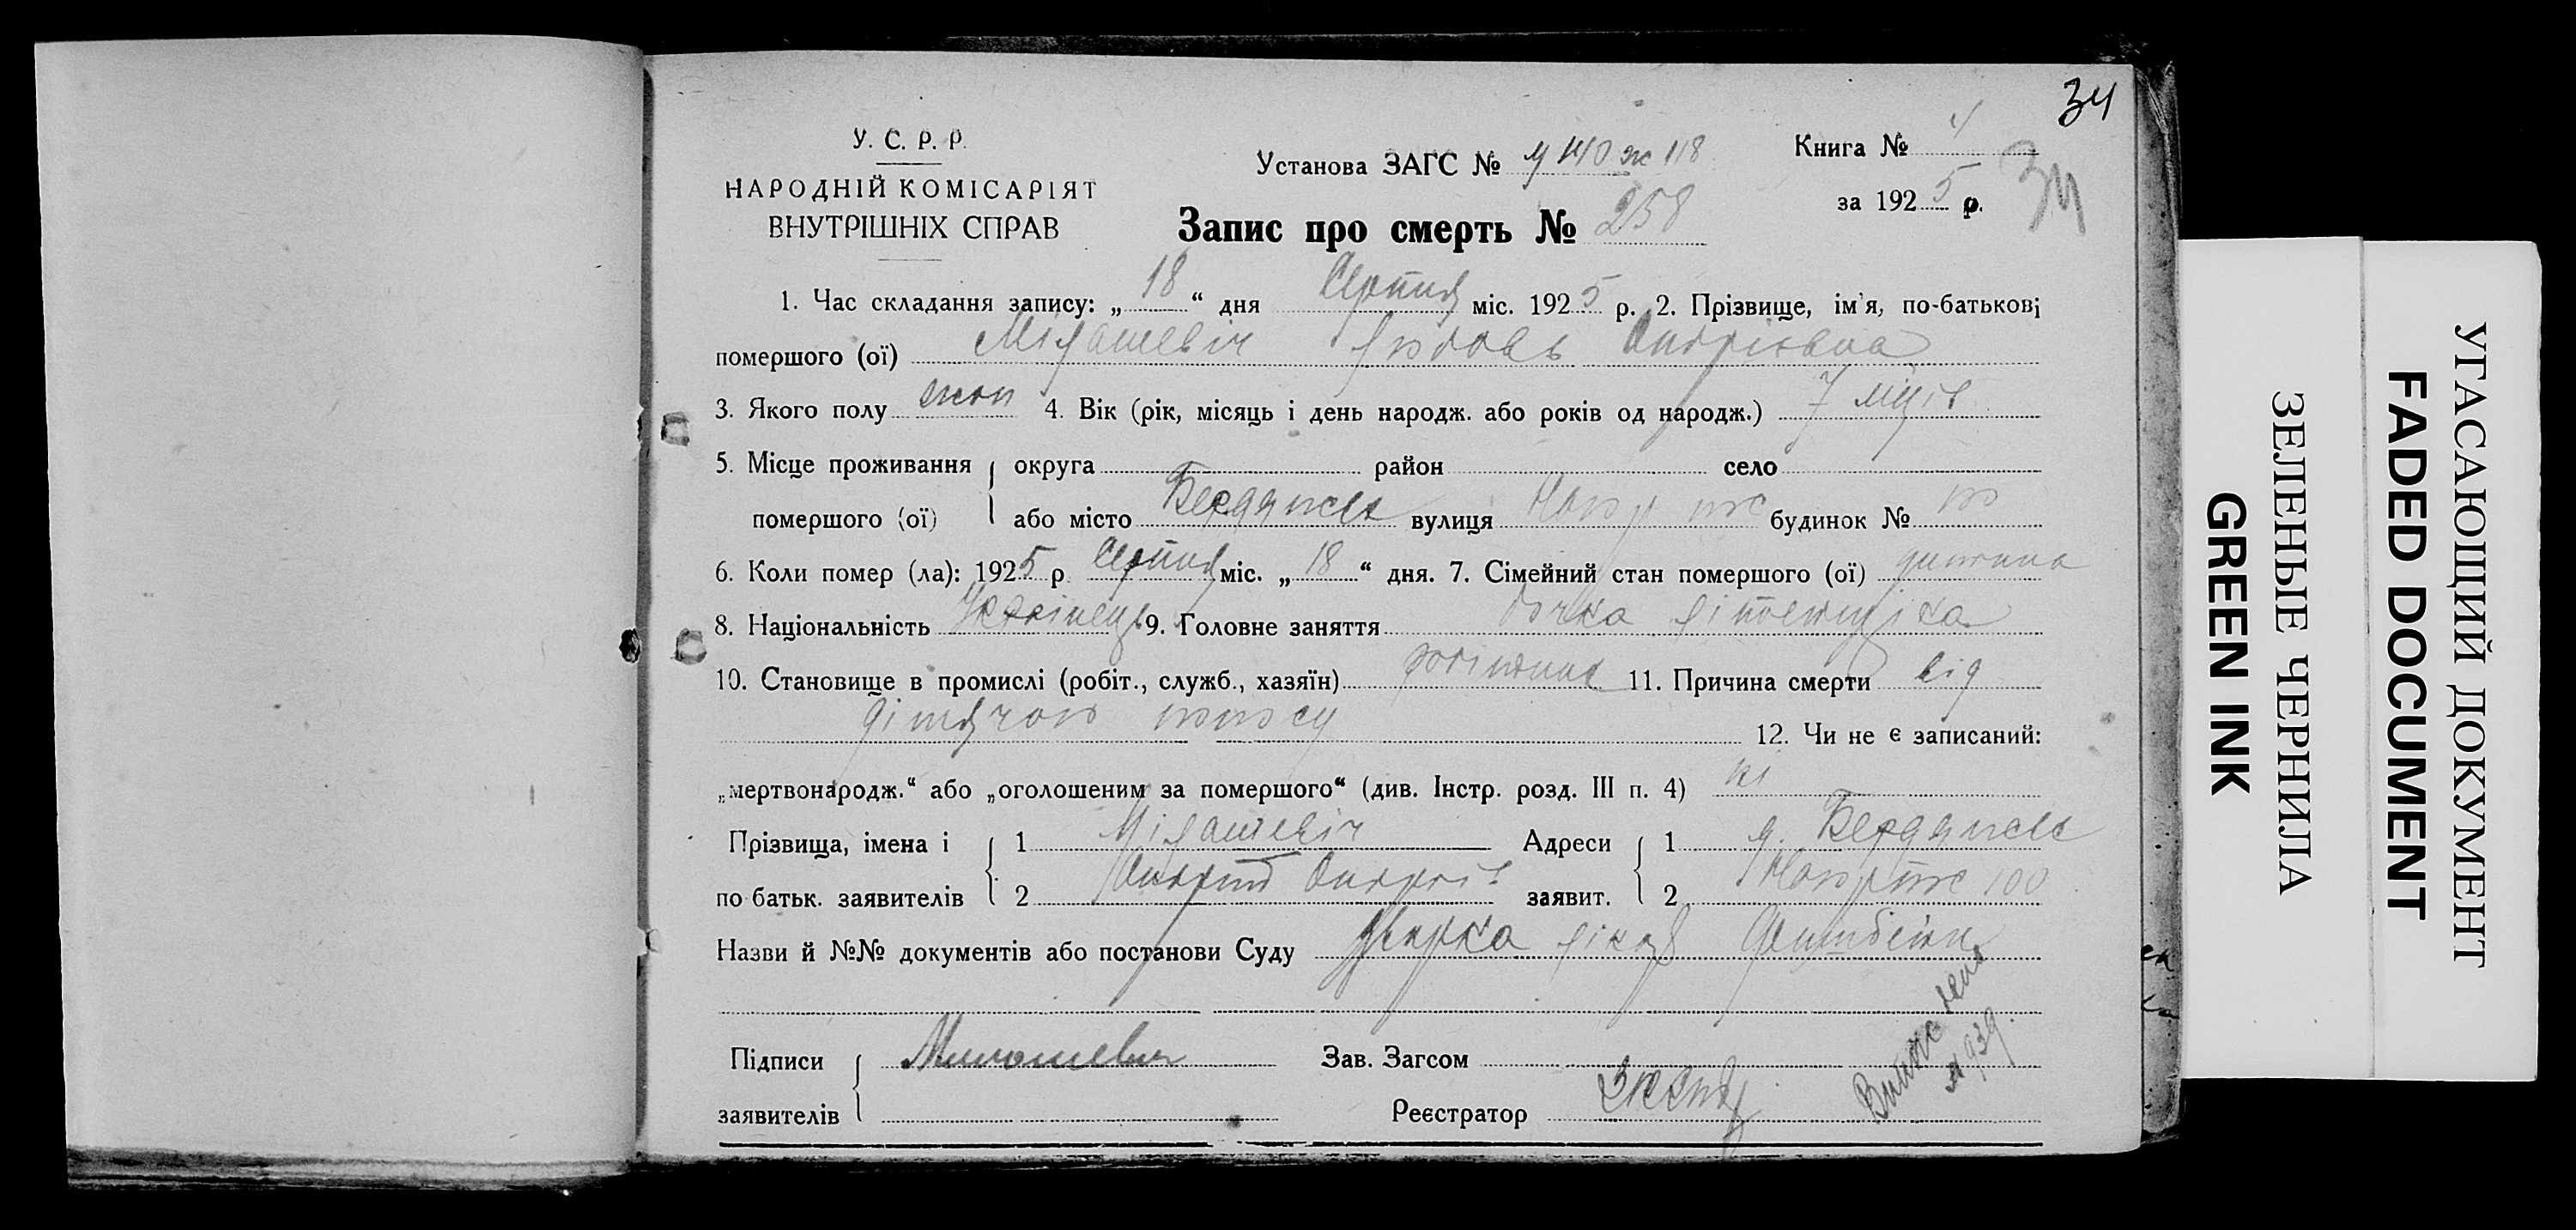 34
У. С. Р. Р.
НАРОДНІЙ КОМІСАРІЯТ
ВНУТРІШНІХ СПРАВ
Установа ЗАГС №
Книга № 4
за 1925 р.
34
Запис про смерть № 258
1. Час складання запису: „ 18 “ дня Серпня міс. 1925 р. 2. Прізвище, ім'я, по-батькові
помершого (ої) Мілашевіч Любовь Андріївна
3. Якого полу жон 4. Вік (рік, місяць і день народж. або років од народж.) 7 міців
5. Місце проживання округа район село
помершого (ої) або місто Бердянськ вулиця будинок №
6. Коли помер (ла): 1925 р Серпня міс. „ 18 “ дня. 7. Сімейний стан помершого (ої) дитина
8. Національність Українець 9. Головне заняття дочка
10. Становище в промислі (робіт., служб., хазяїн) робітник 11. Причина смерти від
дітячого поносу
12. Чи не є записаний:
„мертвонародж.“ або „оголошеним за помершого“ (див. Інстр. розд. III п. 4) ні
Прізвища, імена і 1 Мілашевіч Адреси 1 м. Бердянськ
по батьк. заявителів 2 Андрій Андріїв заявит. 2 100
Назви й №№ документів або постанови Суду
Підписи Милошевич Зав. Загсом
заявителів Реєстратор
1939
УГАСАЮЩИЙ ДОКУМЕНТ
FADED DOCUMENT
ЗЕЛЕНЫЕ ЧЕРНИЛА
GREEN INK